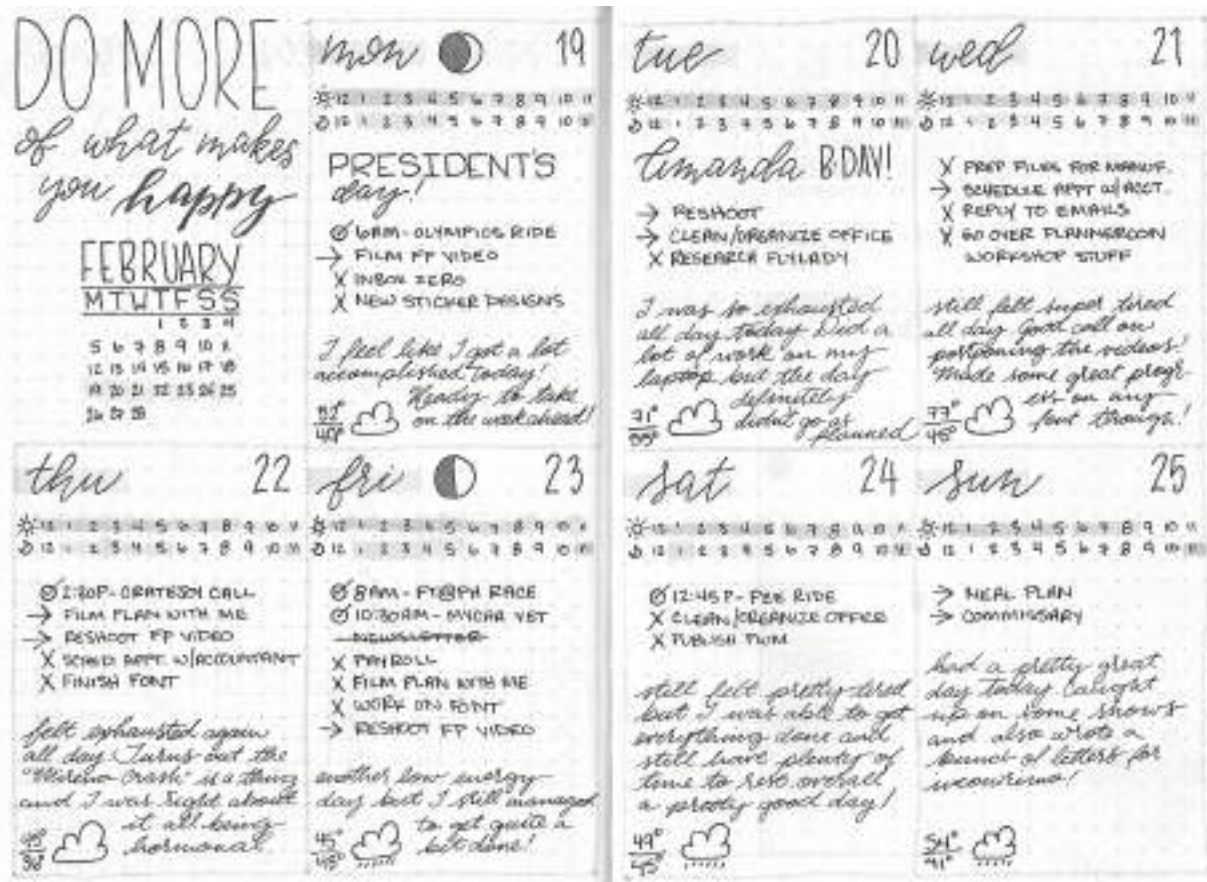 DO MORE
of what makes
you happy
FEBRUARY
M T W T F S S
1 2 3 4
5 6 7 8 9 10 11
12 13 14 15 16 17 18
19 20 21 22 23 24 25
26 27 28
mon 19
12 1 2 3 4 5 6 7 8 9 10 11
12 1 2 3 4 5 6 7 8 9 10 11
PRESIDENT'S
day!
6AM - OLYMPICS RIDE
→ FILM FP VIDEO
X INBOX ZERO
X NEW STICKER DESIGNS
I feel like I got a lot
accomplished today!
Ready to take
on the week ahead!
52°
40°
tue 20
12 1 2 3 4 5 6 7 8 9 10 11
12 1 2 3 4 5 6 7 8 9 10 11
Amanda B-DAY!
→ RESHOOT
→ CLEAN/ORGANIZE OFFICE
X RESEARCH FLYLADY
I was so exhausted
all day today. Did a
lot of work on my
laptop but the day
definitely
didn't go as
planned
71°
55°
wed 21
12 1 2 3 4 5 6 7 8 9 10 11
12 1 2 3 4 5 6 7 8 9 10 11
X PREP FILES FOR MANUF.
→ SCHEDULE APPT W/ACCT.
X REPLY TO EMAILS
X GO OVER PLANNERCON
WORKSHOP STUFF
still felt super tired
all day. Good call on
postponing the videos!
Made some great progr-
ess on my
font though!
77°
45°
thu 22
12 1 2 3 4 5 6 7 8 9 10 11
12 1 2 3 4 5 6 7 8 9 10 11
CRATEJOY CALL
→ FILM PLAN WITH ME
→ RESHOOT FP VIDEO
X SCHED APPT. W/ACCOUNTANT
X FINISH FONT
felt exhausted again
all day. Turns out the
"Mirena Crash" is a thing
and I was right about
it all being
hormonal
fri 23
12 1 2 3 4 5 6 7 8 9 10 11
12 1 2 3 4 5 6 7 8 9 10 11
8AM - RACE
10:30AM - VET
NEWSLETTER
X PAYROLL
X FILM PLAN WITH ME
X WORK ON FONT
→ RESHOOT FP VIDEO
another low energy
day but I still managed
to get quite a
bit done!
45°
sat 24
12 1 2 3 4 5 6 7 8 9 10 11
12 1 2 3 4 5 6 7 8 9 10 11
12:45P - RIDE
X CLEAN/ORGANIZE OFFICE
X PUBLISH PWM
still felt pretty tired
but I was able to get
everything done and
still have plenty of
time to rest. overall
a pretty good day!
49°
45°
sun 25
12 1 2 3 4 5 6 7 8 9 10 11
12 1 2 3 4 5 6 7 8 9 10 11
→ MEAL PLAN
→ COMMISSARY
had a pretty great
day today. Caught
up on some shows
and also wrote a
bunch of letters for
54°